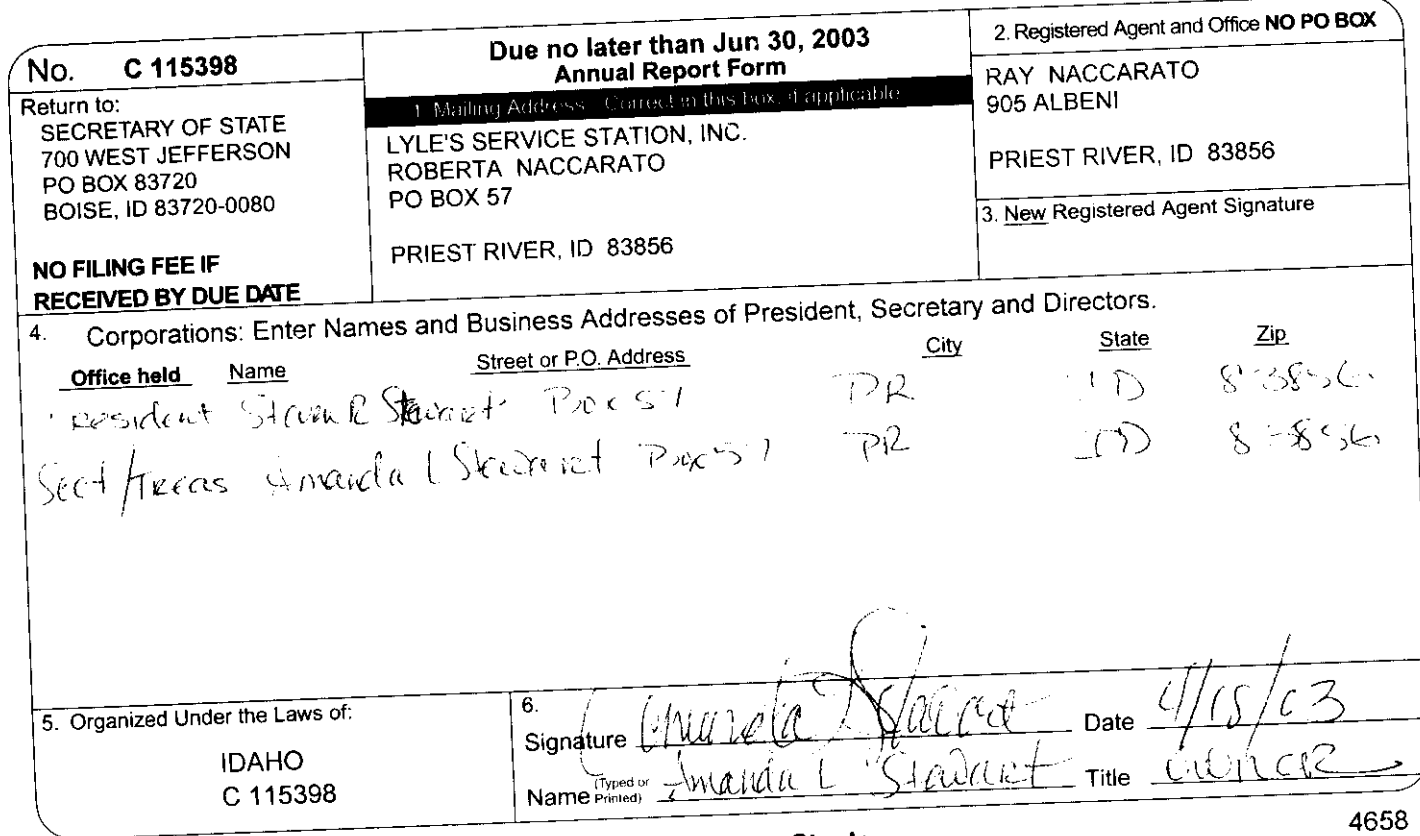 No. C 115398
Return to:
SECRETARY OF STATE
700 WEST JEFFERSON
PO BOX 83720
BOISE, ID 83720-0080
NO FILING FEE IF
RECEIVED BY DUE DATE
Due no later than Jun 30, 2003
Annual Report Form
1. Mailing Address: Correct in this box, if applicable
LYLE'S SERVICE STATION, INC.
ROBERTA NACCARATO
PO BOX 57
PRIEST RIVER, ID 83856
2. Registered Agent and Office NO PO BOX
RAY NACCARATO
905 ALBENI
PRIEST RIVER, ID 83856
3. New Registered Agent Signature
4. Corporations: Enter Names and Business Addresses of President, Secretary and Directors.
Office held Name Street or P.O. Address City State Zip
President R Stewart Box 57 PR ID 83856
Sect/Treas Amanda L Stewart Box 57 PR ID 83856
5. Organized Under the Laws of:
IDAHO
C 115398
6.
Signature Amanda L Stewart Date 4/15/03
Name (Typed or Printed) Amanda L Stewart Title OWNER
4658